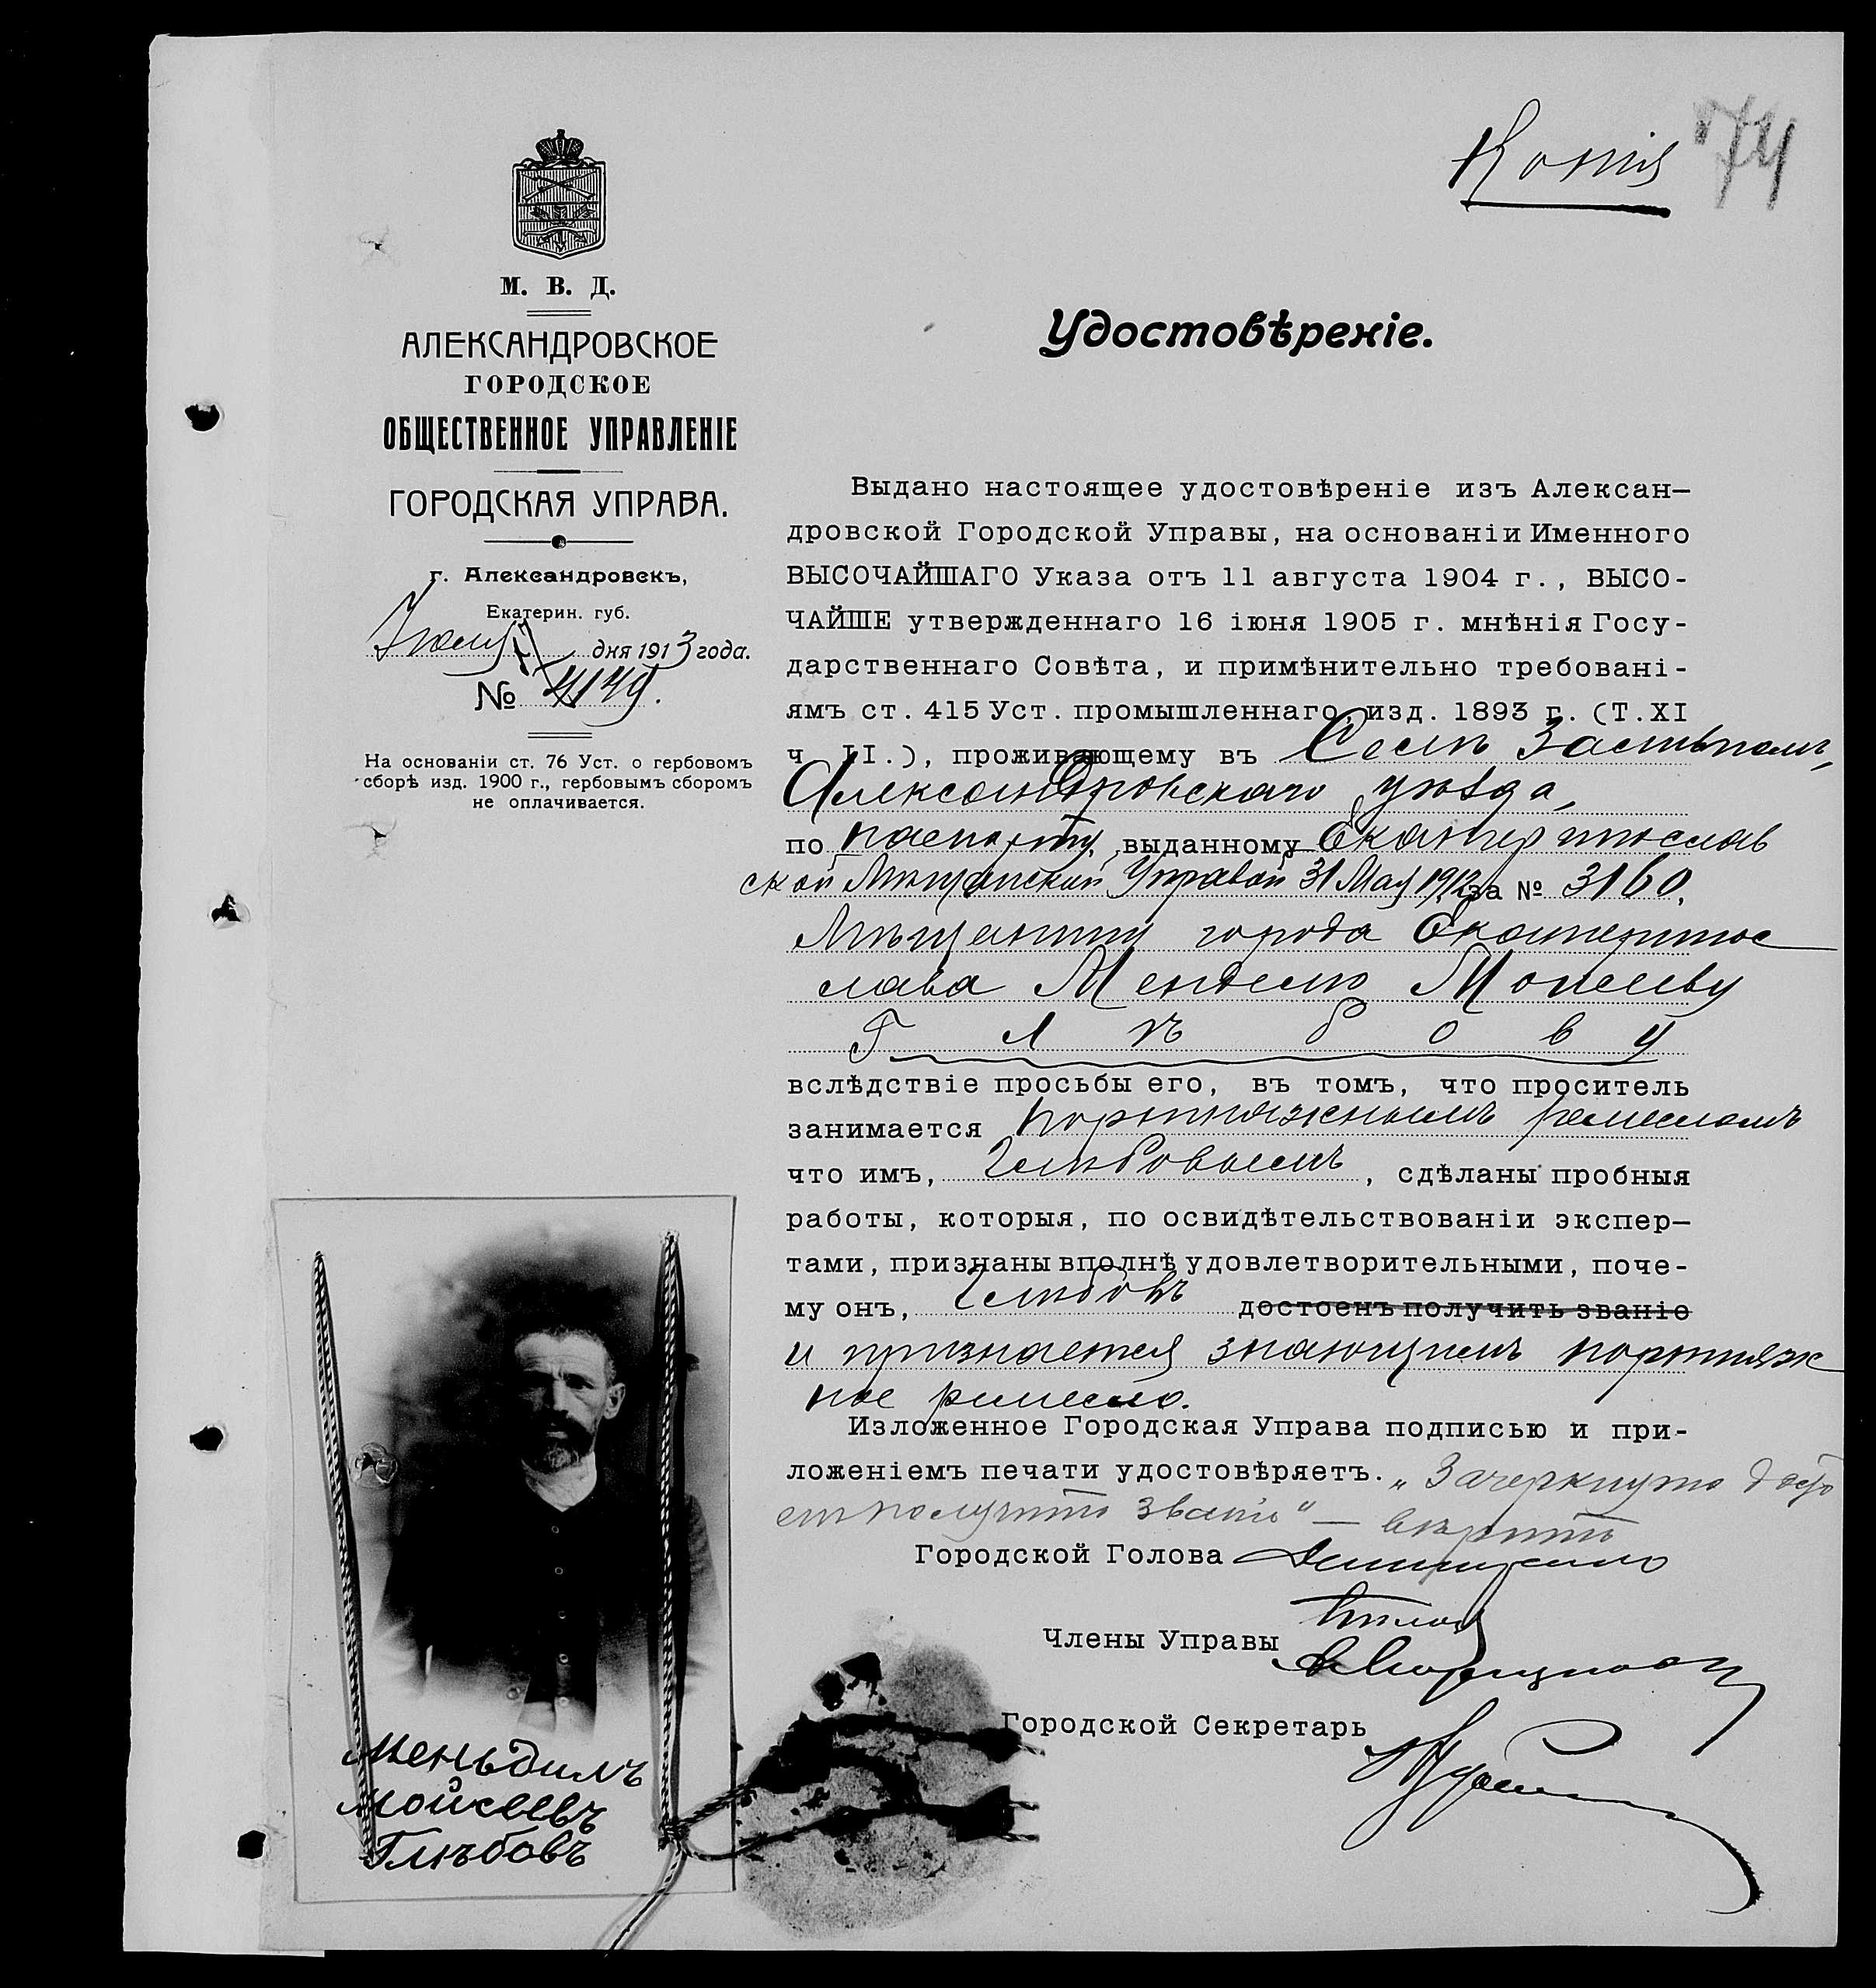 Копія 74
М. В. Д.
АЛЕКСАНДРОВСКОЕ
ГОРОДСКОЕ
ОБЩЕСТВЕННОЕ УПРАВЛЕНІЕ
ГОРОДСКАЯ УПРАВА.
г. Александровскъ,
Екатерин. губ.
дня 1913 года.
№ 4149.
На основаніи ст. 76 Уст. о гербовомъ
сборѣ изд. 1900 г., гербовымъ сборомъ
не оплачивается.
Удостовѣреніе.
Выдано настоящее удостовѣреніе изъ Алексан—
дровской Городской Управы, на основаніи Именного
ВЫСОЧАЙШАГО Указа отъ 11 августа 1904 г., ВЫСО-
ЧАЙШЕ утвержденнаго 16 іюня 1905 г. мнѣнія Госу-
дарственнаго Совѣта, и примѣнительно требовані-
ямъ ст. 415 Уст. промышленнаго, изд. 1893 г. (Т. XI
ч II.), проживающему въ Селѣ
Александровскаго уѣзда,
по паспорту, выданному Екатеринослав
ской Мѣщанской Управой 31 Мая 1912 за № 3160,
Мѣщанину города Екатеринос
лава Менделю Моисееву
Глѣбову
вслѣдствіе просьбы его, въ томъ, что проситель
занимается портняжнымъ ремесломъ
что имъ, Глѣбовымъ, сдѣланы пробныя
работы, которыя, по освидѣтельствованіи экспер—
тами, признаны вполнѣ удовлетворительными, поче-
му онъ, Глѣбовъ достоенъ получить званіе
и признается знающимъ портняж
ное ремесло.
Изложенное Городская Управа подписью и при-
ложеніемъ печати удостовѣряетъ. „Зачеркнуто досто
енъ получить званіе" — вѣрить
Городской Голова
Члены Управы
Городской Секретарь
Меньдилъ
Мойсеевъ
Глѣбовъ